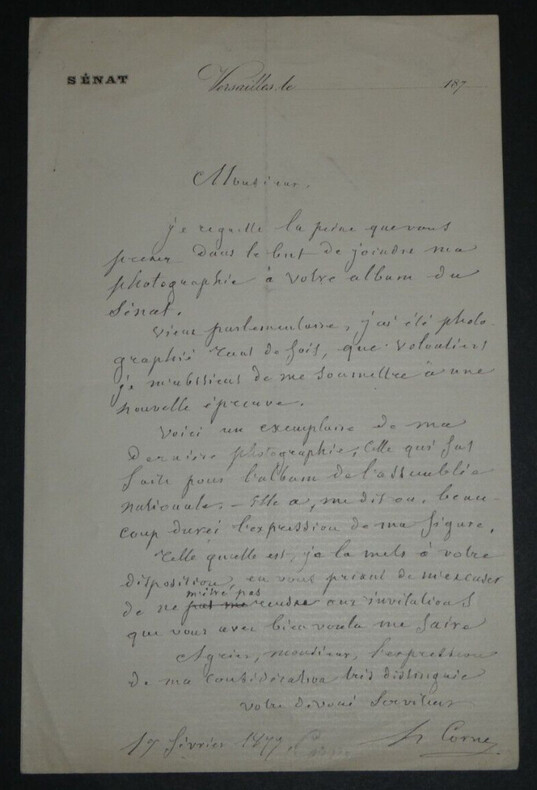 SÉNAT Versailles, le 187
Monsieur,
je regrette la peine que vous
prenez dans le but de joindre ma
photographie à votre album du
Sénat.
Vieux parlementaire, j'ai été photo-
graphié tant de fois, que volontiers
je m'abstiens de me soumettre à une
nouvelle épreuve.
Voici un exemplaire de ma
dernière photographie, celle qui fut
faite pour l'album de l'assemblée
nationale. - Elle a, me dit on, beau-
coup durci l'expression de ma figure.
Telle quelle est, je la mets à votre
disposition, en vous priant de m'excuser
m'être pas
de ne pas me rendre aux invitations
que vous avez bien voulu me faire
Agréez, monsieur, l'expression
de ma considération très distinguée
votre dévoué serviteur
17 février 1877 h Corne